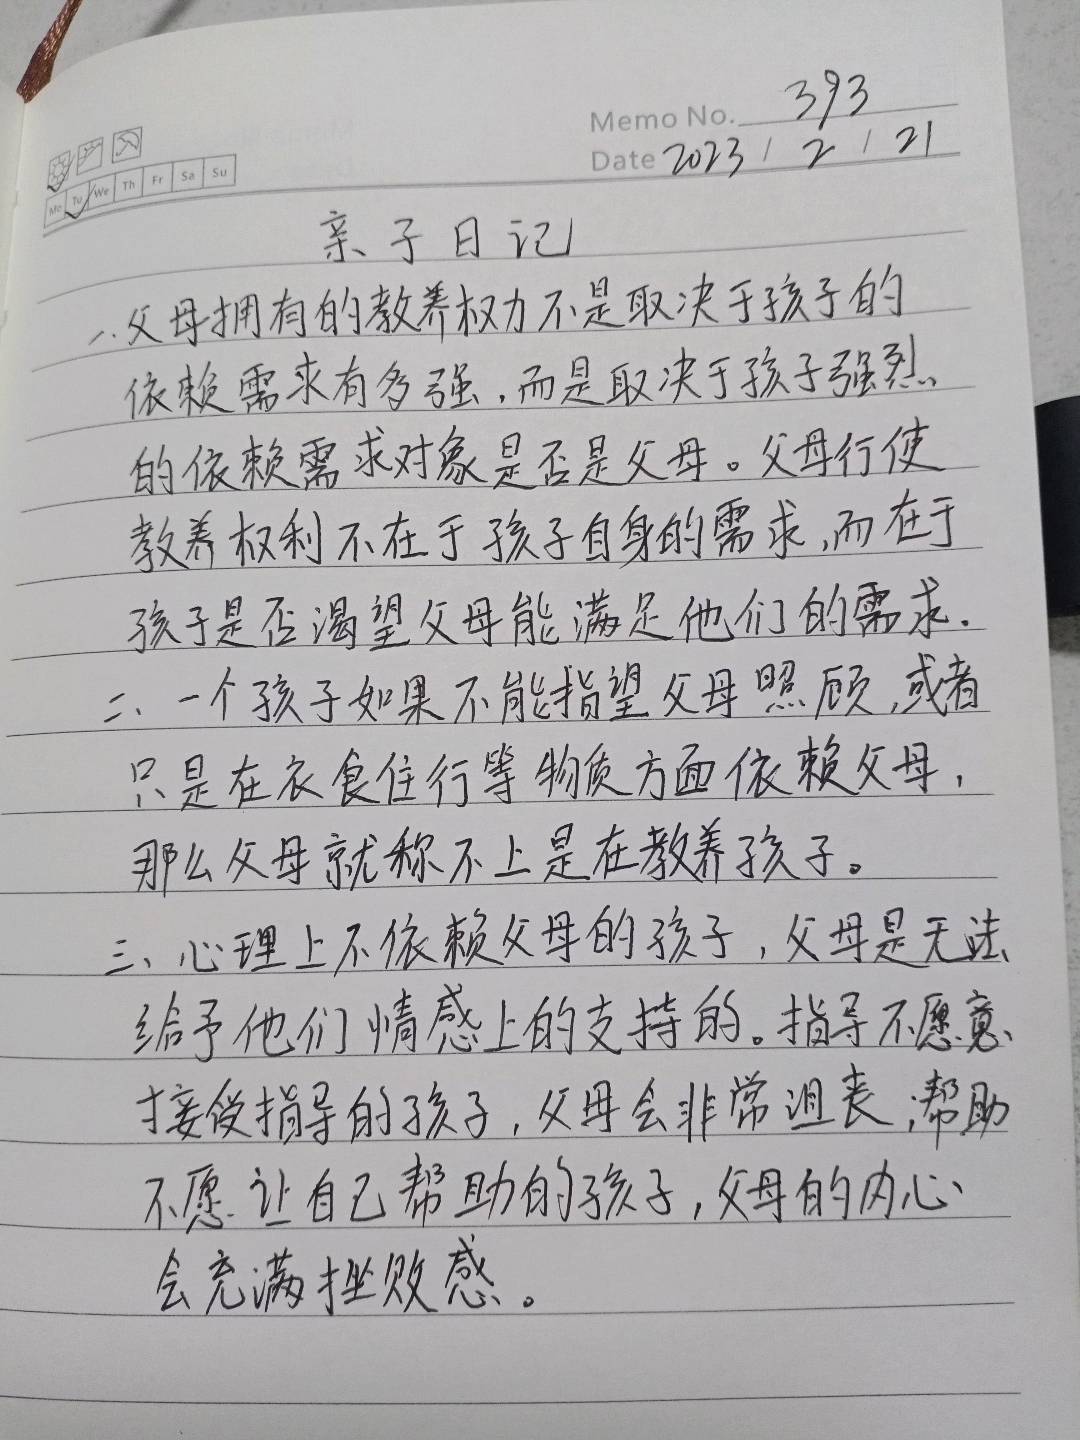 Memo No. 393
Date 2023 / 2 / 21
Mo Tu We Th Fr Sa Su
亲子日记
一.父母拥有的教养权力不是取决于孩子的
依赖需求有多强,而是取决于孩子强烈
的依赖需求对象是否是父母。父母行使
教养权利不在于孩子自身的需求,而在于
孩子是否渴望父母能满足他们的需求.
二、一个孩子如果不能指望父母照顾,或者
只是在衣食住行等物质方面依赖父母,
那么父母就称不上是在教养孩子。
三、心理上不依赖父母的孩子,父母是无法
给予他们情感上的支持的。指导不愿意
接受指导的孩子,父母会非常沮丧;帮助
不愿让自己帮助的孩子,父母的内心
会充满挫败感。